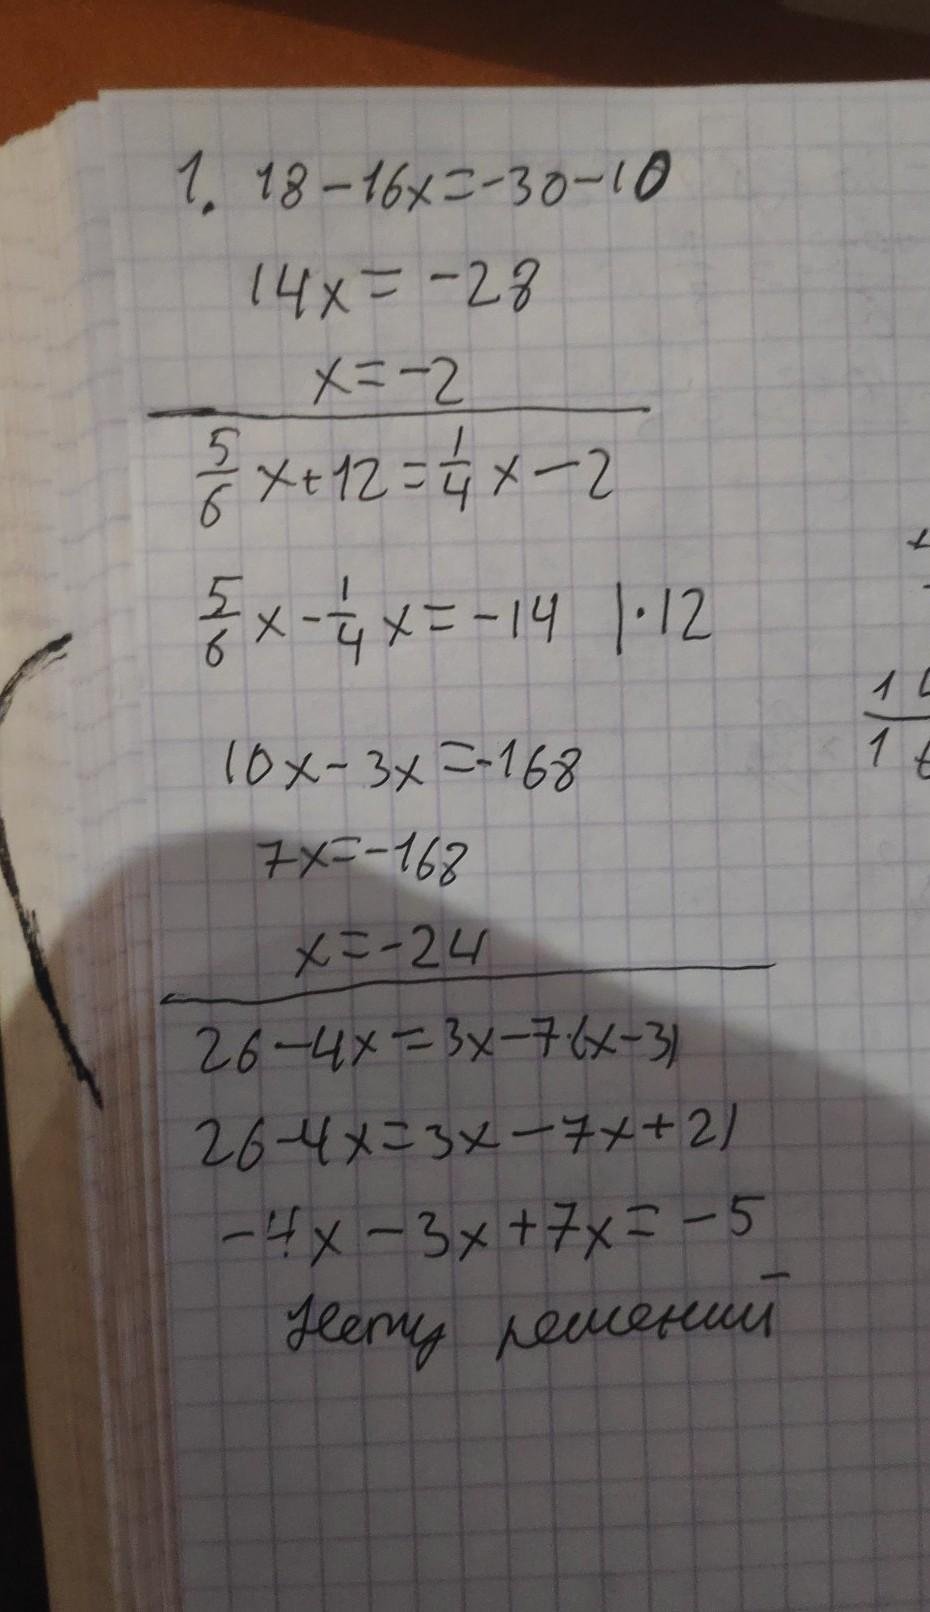 1. 18-16x=-30-10
14x=-28
x=-2
5/6 x+12=1/4 x-2
5/6 x-1/4 x=-14 |·12
10x-3x=-168
7x=-168
x=-24
26-4x=3x-7·(x-3)
26-4x=3x-7x+21
-4x-3x+7x=-5
Нету решений
1
1